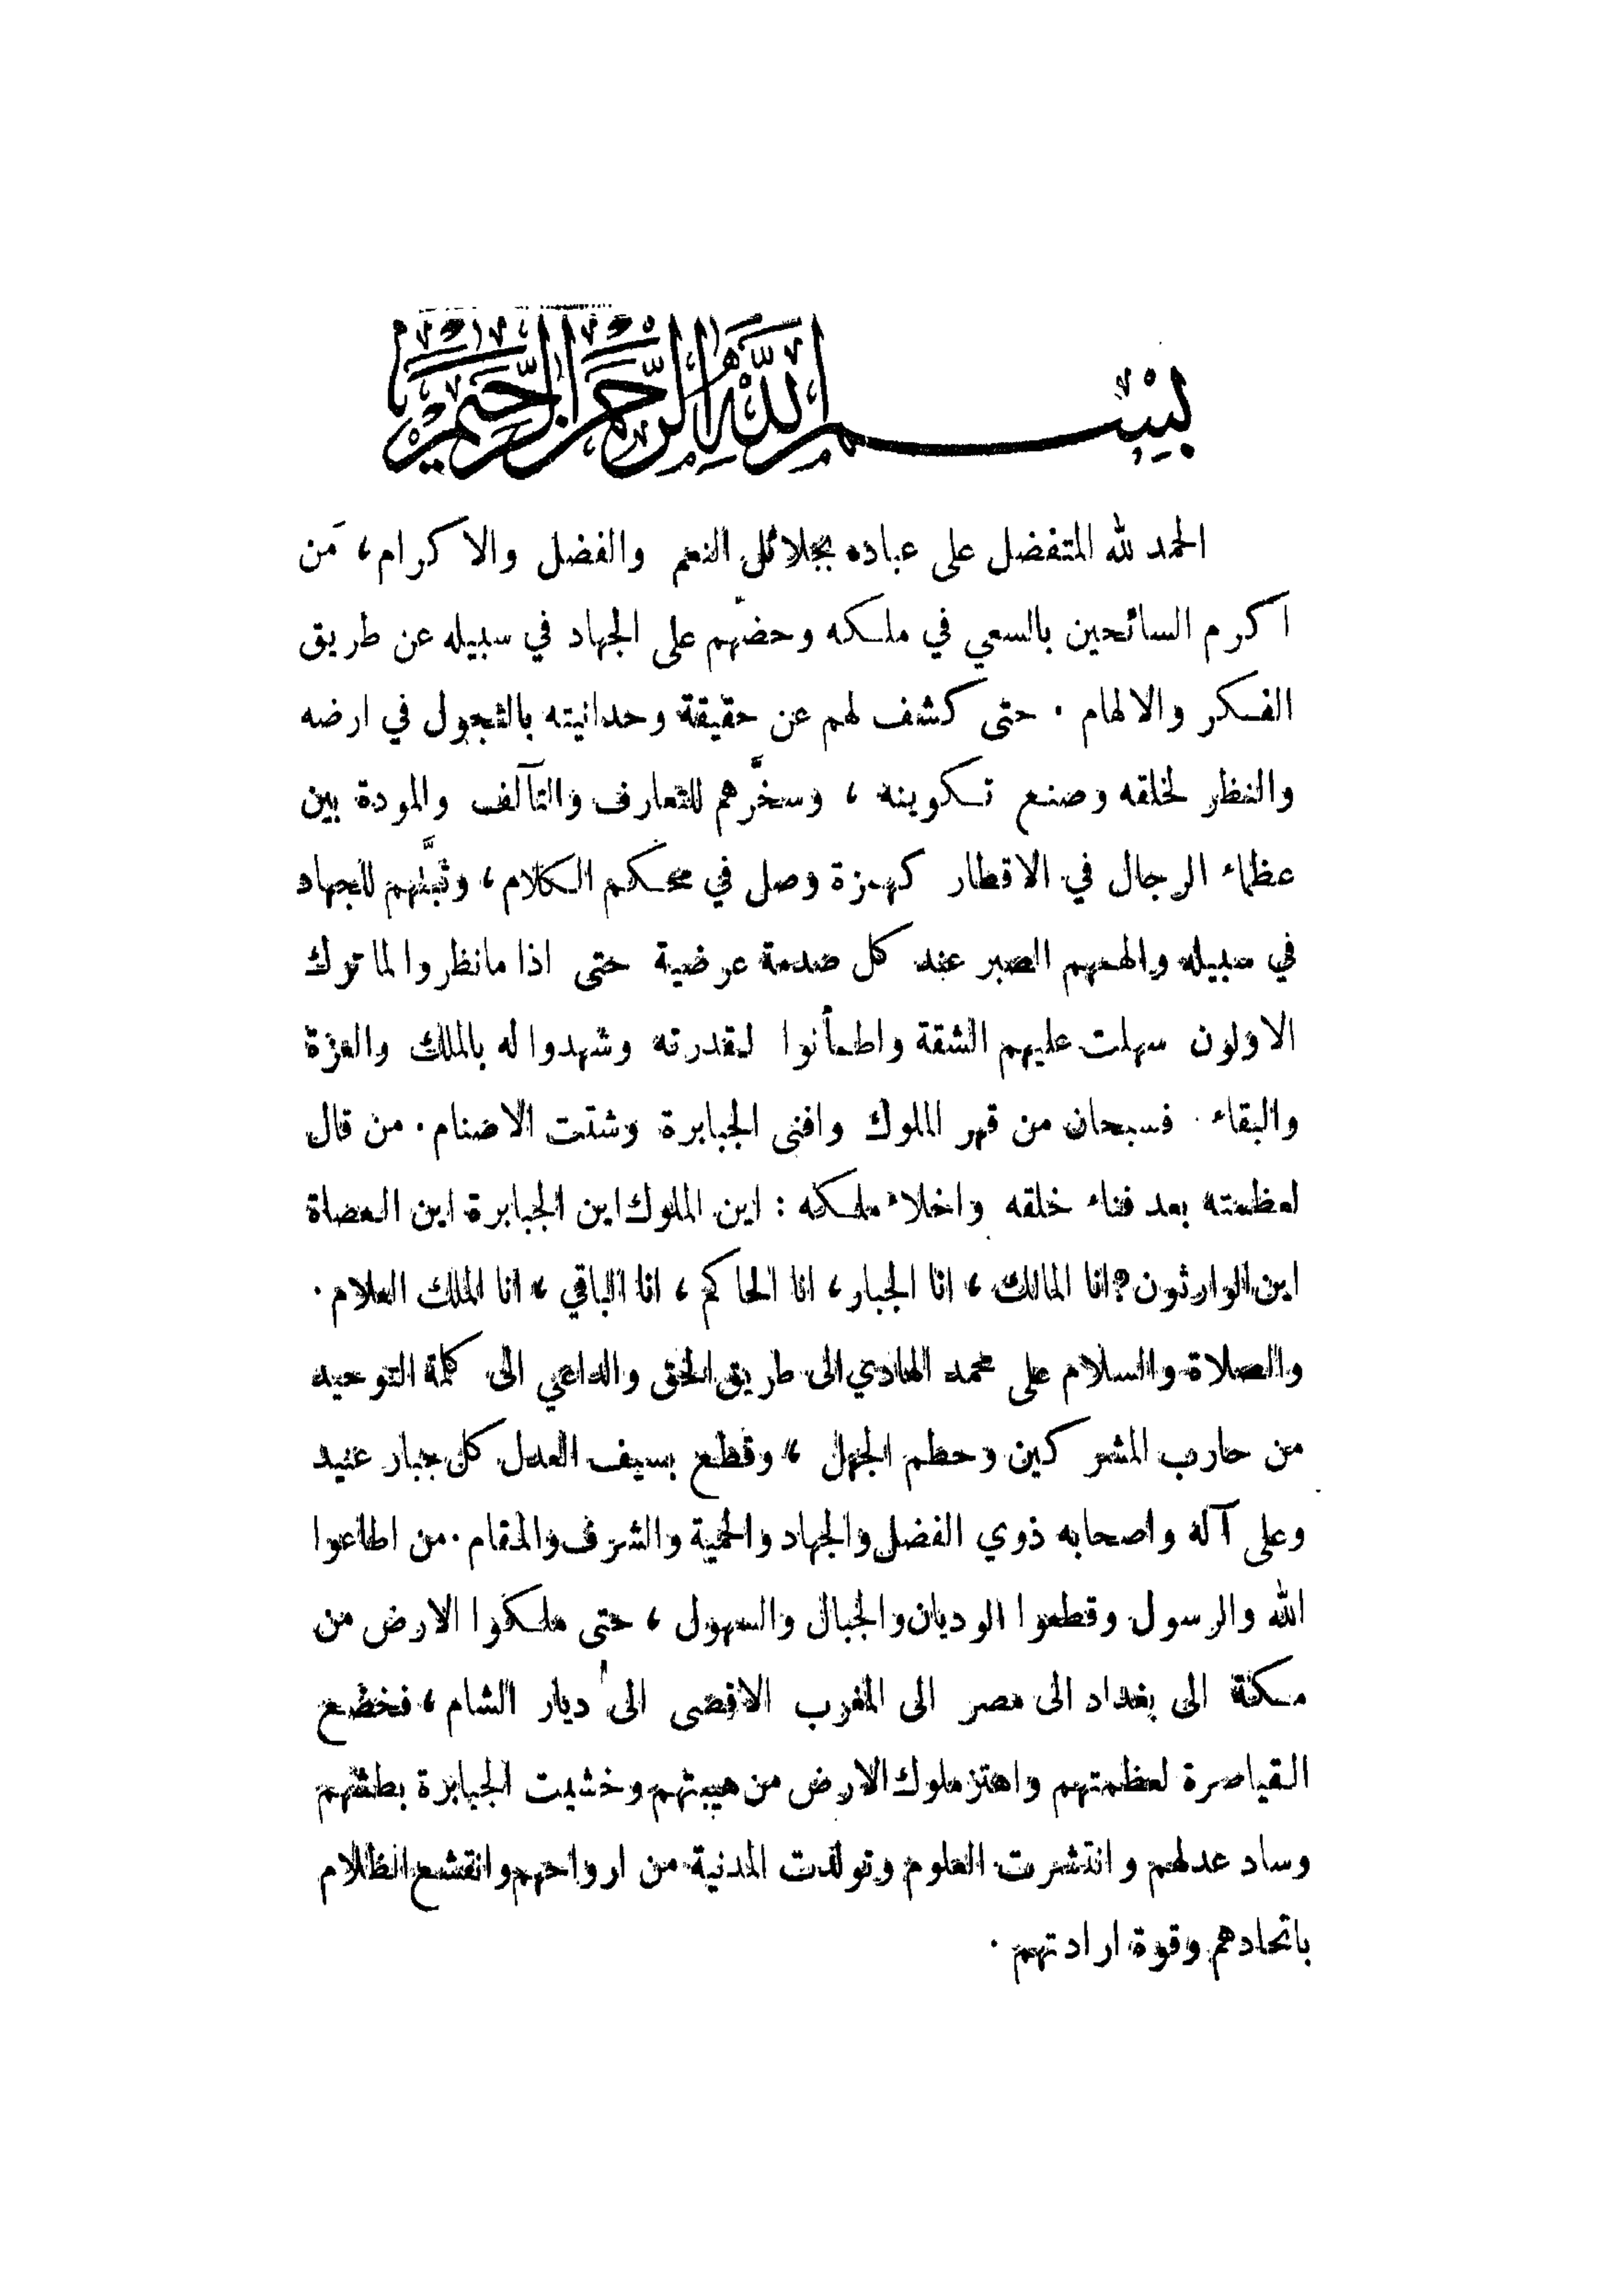 بسم الله الرحمن الرحيم
الحمد لله المتفضل على عباده بجلائل النعم والفضل والاكرام، مَن
اكرم السائحين بالسعي في ملكه وحضّهم على الجهاد في سبيله عن طريق
الفكر والالهام . حتى كشف لهم عن حقيقة وحدانيته بالتجول في ارضه
والنظر لخلقه وصنع تكوينه ، وسخَّرهم للتعارف والتآلف والمودة بين
عظماء الرجال في الاقطار كهمزة وصل في محكم الكلام، وثبَّتهم للجهاد
في سبيله والهمهم الصبر عند كل صدمة عرضية حتى اذا مانظروا لما ترك
الاولون سهلت عليهم الشقة واطمأنوا لقدرته وشهدوا له بالملك والعزة
والبقاء . فسبحان من قهر الملوك وافنى الجبابرة وشتت الاصنام . من قال
لعظمته بعد فناء خلقه واخلاء ملكه : اين الملوك اين الجبابرة اين العصاة
اين الوارثون؟ انا المالك ، انا الجبار ، انا الحاكم ، انا الباقي ، انا الملك العلام .
والصلاة والسلام على محمد الهادي الى طريق الحق والداعي الى كلمة التوحيد
من حارب المشركين وحطم الجهل ، وقطع بسيف العدل كل جبار عنيد
وعلى آله واصحابه ذوي الفضل والجهاد والحمية والشرف والمقام . من اطاعوا
الله والرسول وقطعوا الوديان والجبال والسهول ، حتى ملكوا الارض من
مكة الى بغداد الى مصر الى المغرب الاقصى الى ديار الشام ، فخضع
القياصرة لعظمتهم واهتز ملوك الارض من هيبتهم وخشيت الجبابرة بطشهم
وساد عدلهم وانتشرت العلوم وتولدت المدنية من ارواحهم وانقشع الظلام
باتحادهم وقوة ارادتهم .